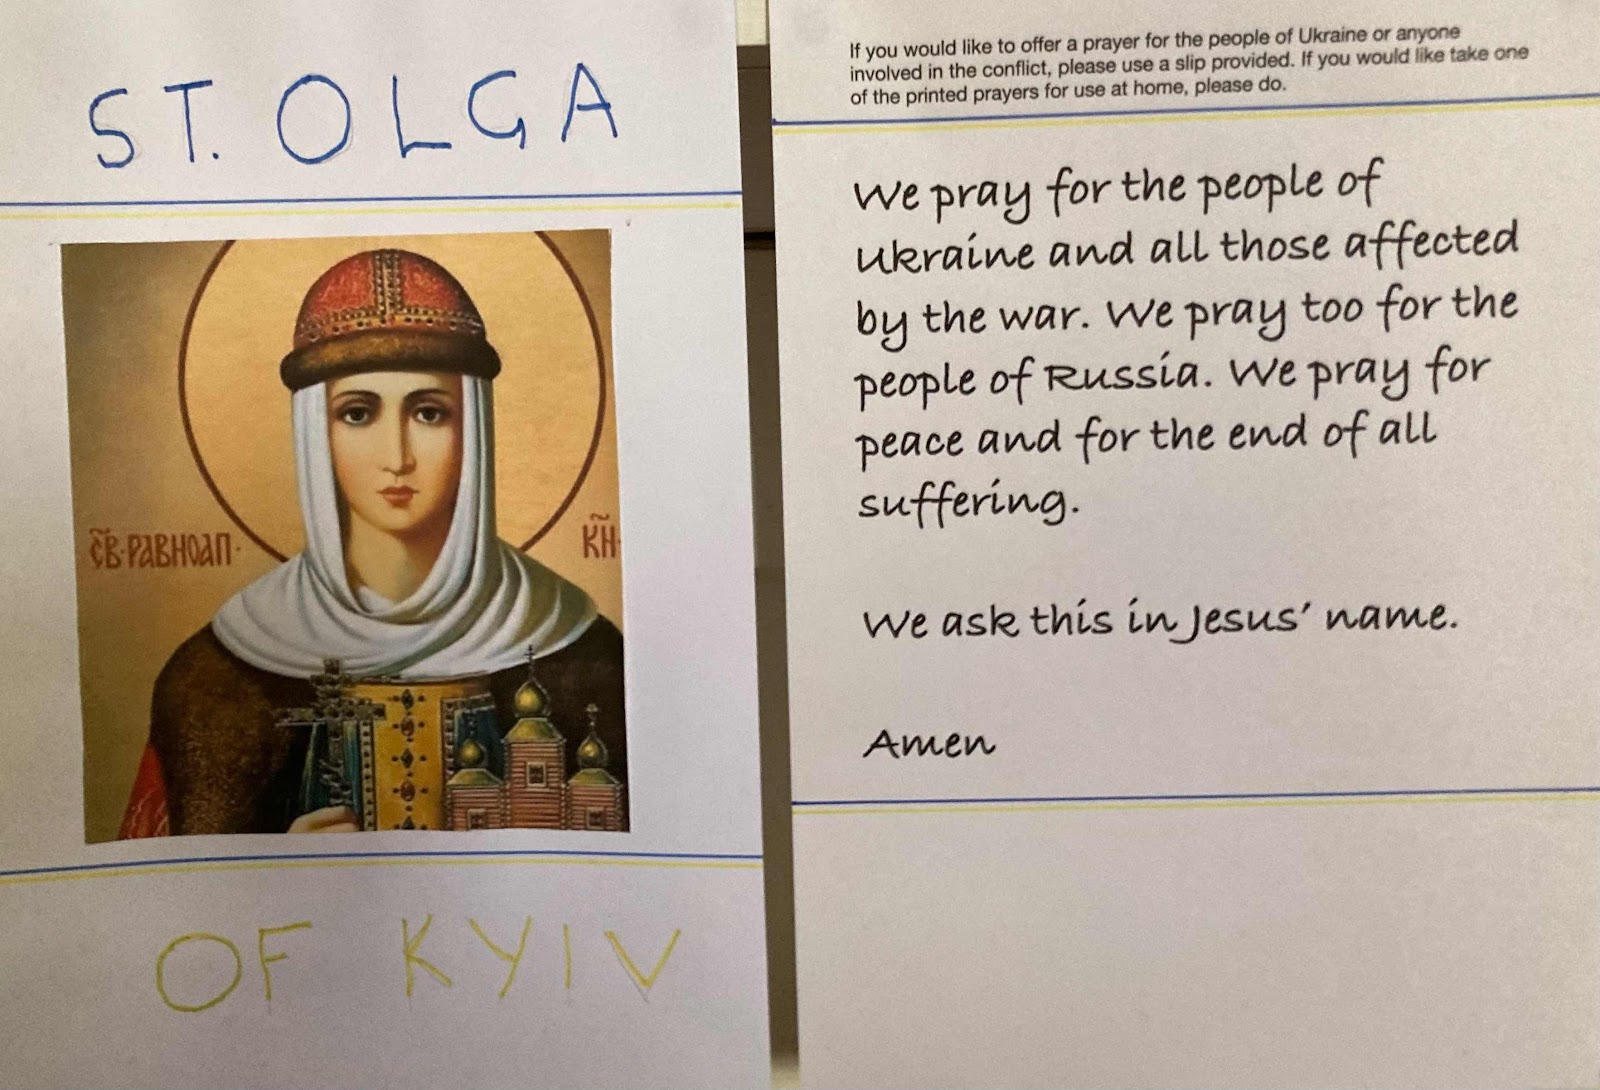 ST. OLGA
СВ·РАВНОАП·
КН·
OF KYIV
If you would like to offer a prayer for the people of Ukraine or anyone
involved in the conflict, please use a slip provided. If you would like take one
of the printed prayers for use at home, please do.
We pray for the people of
Ukraine and all those affected
by the war. We pray too for the
people of Russia. We pray for
peace and for the end of all
suffering.
We ask this in Jesus' name.
Amen